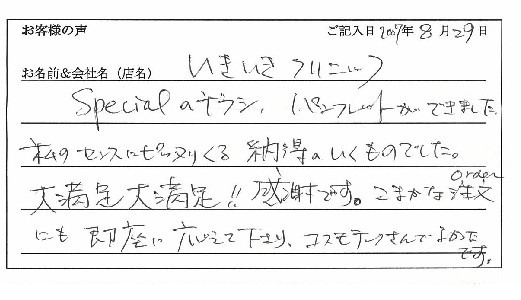 お客様の声 ご記入日 2007年 8月29日
お名前&会社名（店名） いきいきクリニック
Specialのチラシ、パンフレットができました。
私のセンスにピッタリくる 納得のいくものでした。
大満足大満足!! 感謝です。こまかな注文
order
にも 即座に応えて下さり、コスモテークさんでよかった
です。